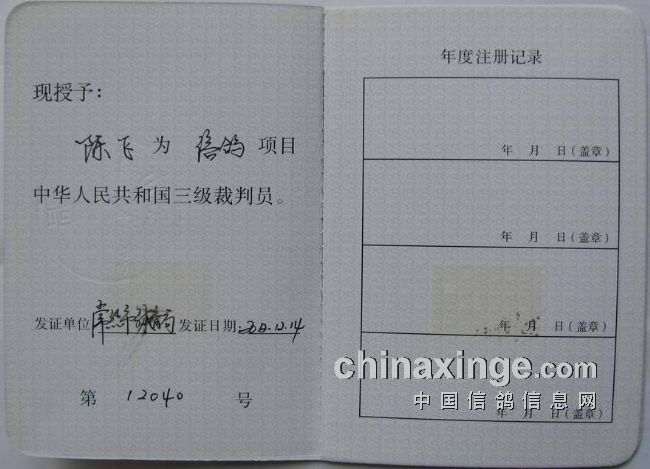 现授予：
陈飞 为 信鸽 项目
中华人民共和国三级裁判员。
发证单位 发证日期:
第 12040 号
年度注册记录
年 月 日(盖章)
年 月 日(盖章)
年 月 日(盖章)
年 月 日(盖章)
chinaxinge.com
中国信鸽信息网